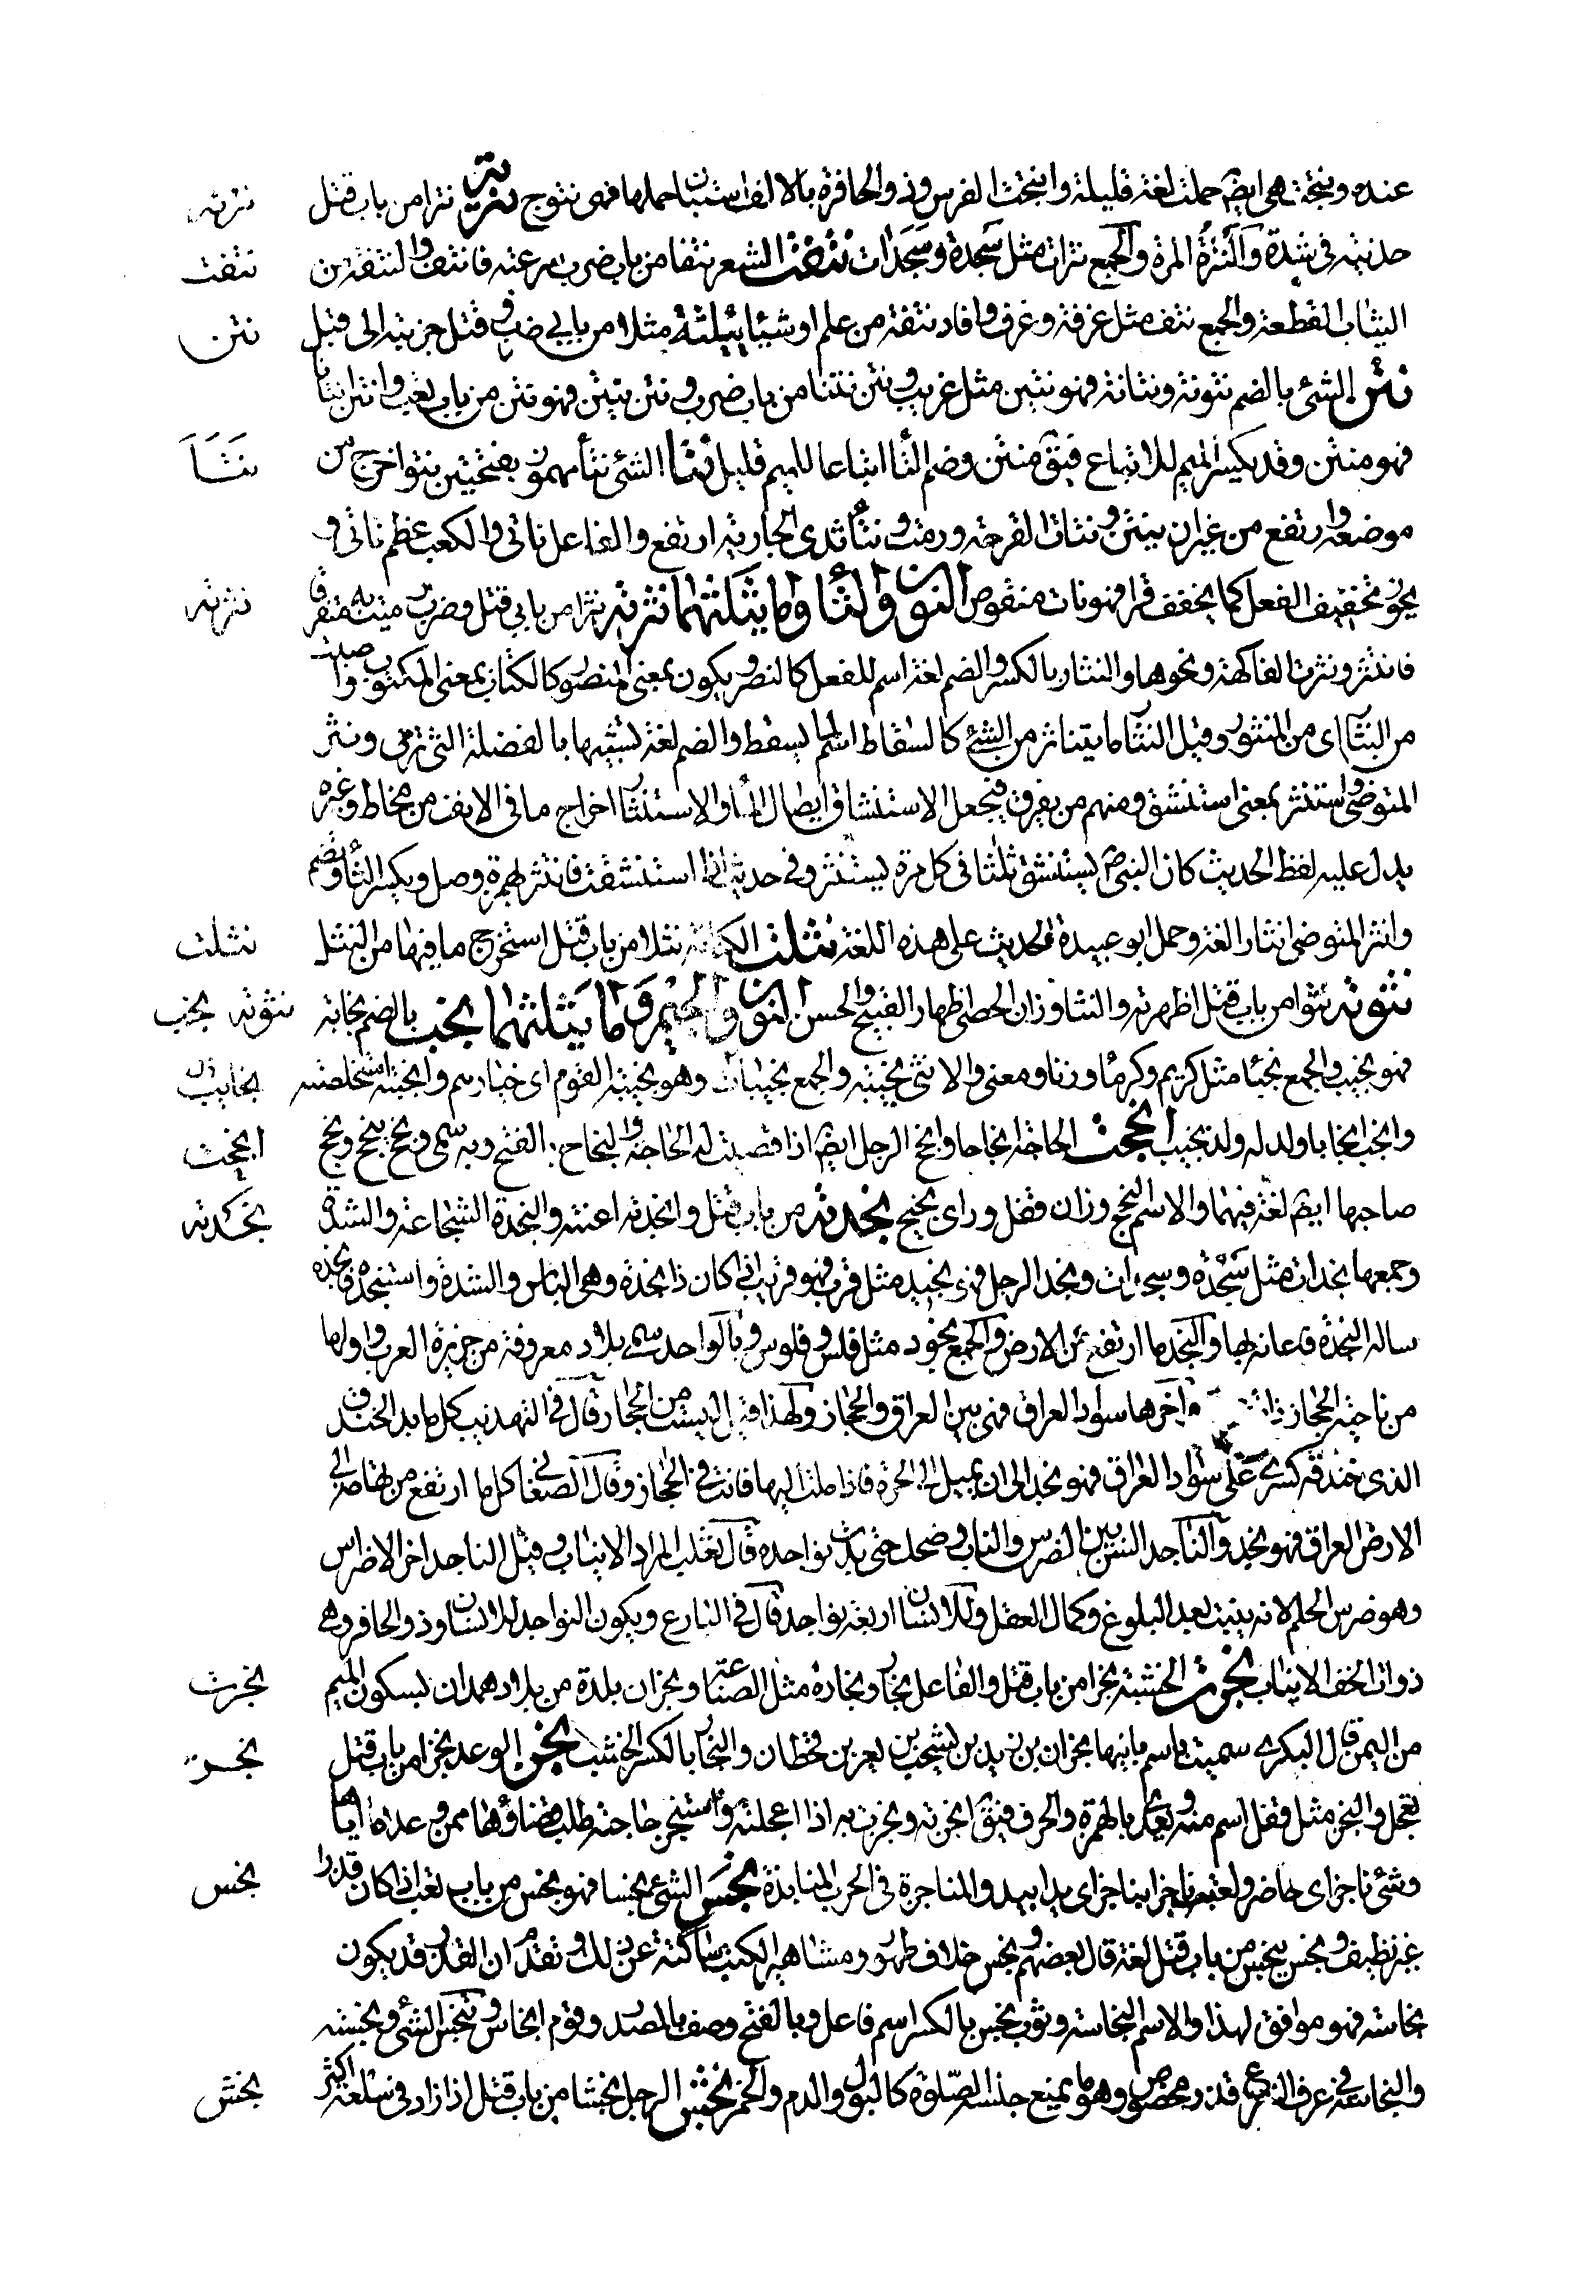 عنده ونتجت هي ايضا حملت لغة قليلة وانتجت الفرس وذو الحافرة بالالف استبان حملها فهي نتوج نترته نترا من باب قتل نترته
جذبته في شدة والنترة المرة والجمع نترات مثل سجدة وسجدات نتفت الشعر نتفا من باب ضرب نزعته فانتتف والنتفة من نتفت
النبات القطعة والجمع نتف مثل غرفة وغرف وافاد نتفة من علم اى شيئا نتلته نتلا من بابي ضرب وقتل جذبته الى قبل
نتن الشئ بالضم نتونة ونتانة فهو نتين مثل قريب ونتن نتنا من باب ضرب ونتن ينتن فهو نتن من باب تعب وانتن انتانا نتن
فهو منتن وقد يكسر الميم للاتباع فيق منتن وضم التاء اتباعا للميم قليل نتأ الشئ نتأ مهموز بفتحتين نتوا خرج من نتأ
موضعه وارتفع من غير ان يبين ونتأت القرحة ورمت ونتأ ثدى الجارية ارتفع والفاعل ناتئ والكعب عظم ناتئ و
يجوز تخفيف الفعل كما يخفف قرا فهو نات منقوص النون والثاء وما يثلثهما نثرته نثرا من بابي قتل وضرب رميت به متفرقا نثرته
فانتثر ونثرت الفاكهة ونحوها والنثار بالكسر والضم لغة اسم للفعل كالنثر ويكون بمعنى المنثور كالكتاب بمعنى المكتوب واصبت
من النثار اى من المنثور وقيل النثار ما يتناثر من الشئ كالسقاط اسم لما يسقط والضم لغة تشبيها بالفضلة التي ترمى ونثر
المتوضى واستنثر بمعنى استنشق ومنهم من يفرق فيجعل الاستنشاق ايصال الماء والاستنثار اخراج ما في الانف من مخاط وغيره
يدل عليه لفظ الحديث كان النبي ص يستنشق ثلثا في كل مرة يستنثر وفي حديث اذا استنشقت فانثر بهمزة وصل ويكسر الثاء وتضم
وانثر المتوضى انثارا لغة وحمل ابو عبيدة الحديث على هذه اللغة نثلت الكنانة نثلا من باب قتل استخرج ما فيها من النبل نثلت
نثوته نثوا من باب قتل اظهرته والنثا وزان الحصى اظهار القبيح والحسن النون والجيم وما يثلثهما نجب بالضم نجابة نثوته نجب
فهو نجيب والجمع نجباء مثل كريم وكرماء وزنا ومعنى والانثى نجيبة والجمع نجيبات وهو نجيبة القوم اى خيارهم وانتجبته استخلصته
وانجب انجابا ولد له ولد نجيب انجحت الحاجة انجاحا وانجح الرجل ايضا اذا قضيت له الحاجة والنجاح بالفتح وبه سمى ونجح ينجح ونجح انجحت
صاحبها ايضا لغة فيهما والاسم النجح وزان قفل وراى نجيح نجدته من باب قتل وانجدته اعنته والنجدة الشجاعة والشدة نجدته
وجمعها نجدات مثل سجدة وسجدات ونجد الرجل فهو نجيد مثل قرب فهو قريب اذا كان ذا نجدة وهي الباس والشدة واستنجده فانجده
ساله النجدة فاعانه بها والنجد ما ارتفع من الارض والجمع نجود مثل فلس وفلوس وبالواحد سمى بلاد معروفة من جزيرة العرب واولها
من ناحية الحجاز ذات واخرها سواد العراق فهي بين العراق والحجاز ولهذا قيل ليست من الحجاز وقال في التهذيب كل ما بدا الخندق
الذى خندقه كسرى على سواد العراق فهو نجد الى ان يميل الى الحرة فاذا ملت اليها فانت في الحجاز وقال الصغانى كل ما ارتفع من تهامة الى
الارض العراق فهو نجد والناجد السن بين الضرس والناب وضحك حتى بدت نواجده قال ثعلب المراد الانياب وقيل الناجد اخر الاضراس
وهو ضرس الحلم لانه ينبت بعد البلوغ وكمال العقل وللانسان اربعة نواجد قال في البارع ويكون النواجد للانسان وذو الحافر وهي
ذوات الخف الانياب نجرت الخشبة نجرا من باب قتل والفاعل نجار ونجارة مثل الصناعة ونجران بلدة من بلاد همدان بسكون الميم نجرت
من اليمن قال البكرى سميت باسم بانيها نجران بن زيد بن يشجب بن يعرب بن قحطان والنجار بالكسر الخشب نجز الوعد نجزا من باب قتل نجز
تعجل والنجز مثل قفل اسم منه ويعدى بالهمزة والحرف فيق انجزته ونجزت به اذا اعجلته واستنجز حاجته طلب قضاءها ممن وعده اياها
وشئ ناجز اى حاضر وبعته ناجزا بناجز اى يدا بيد والمناجزة في الحرب المبارزة نجس الشئ نجسا فهو نجس من باب تعب اذا كان قذرا نجس
غير نظيف ونجس ينجس من باب قتل لغة قال بعضهم ونجس خلاف طهر ومشاهير الكتب ساكتة عن ذلك وتقدم ان القذر قد يكون
نجاسة فهو موافق لهذا والاسم النجاسة وثوب نجس بالكسر اسم فاعل وبالفتح وصف بالمصدر وقوم انجاس وتنجس الشئ ونجسته
والنجاسة في عرف الشرع قذر مخصوص وهو ما يمنع جنسه الصلوة كالبول والدم والخمر نجش الرجل نجشا من باب قتل اذا زاد في سلعة اكثر نجش